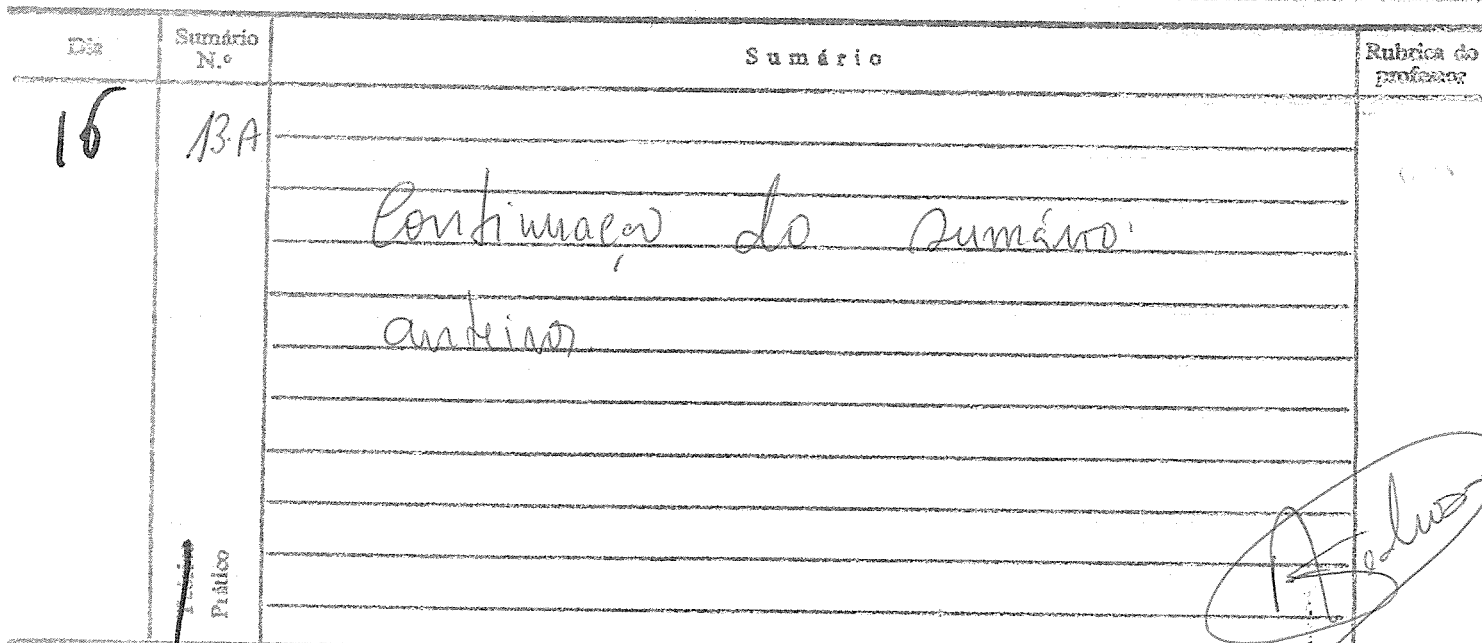 Dia
Sumário
N.º
Sumário
Rubrica do
professor
16
13.A
Continuação do sumário
anterior
Prático